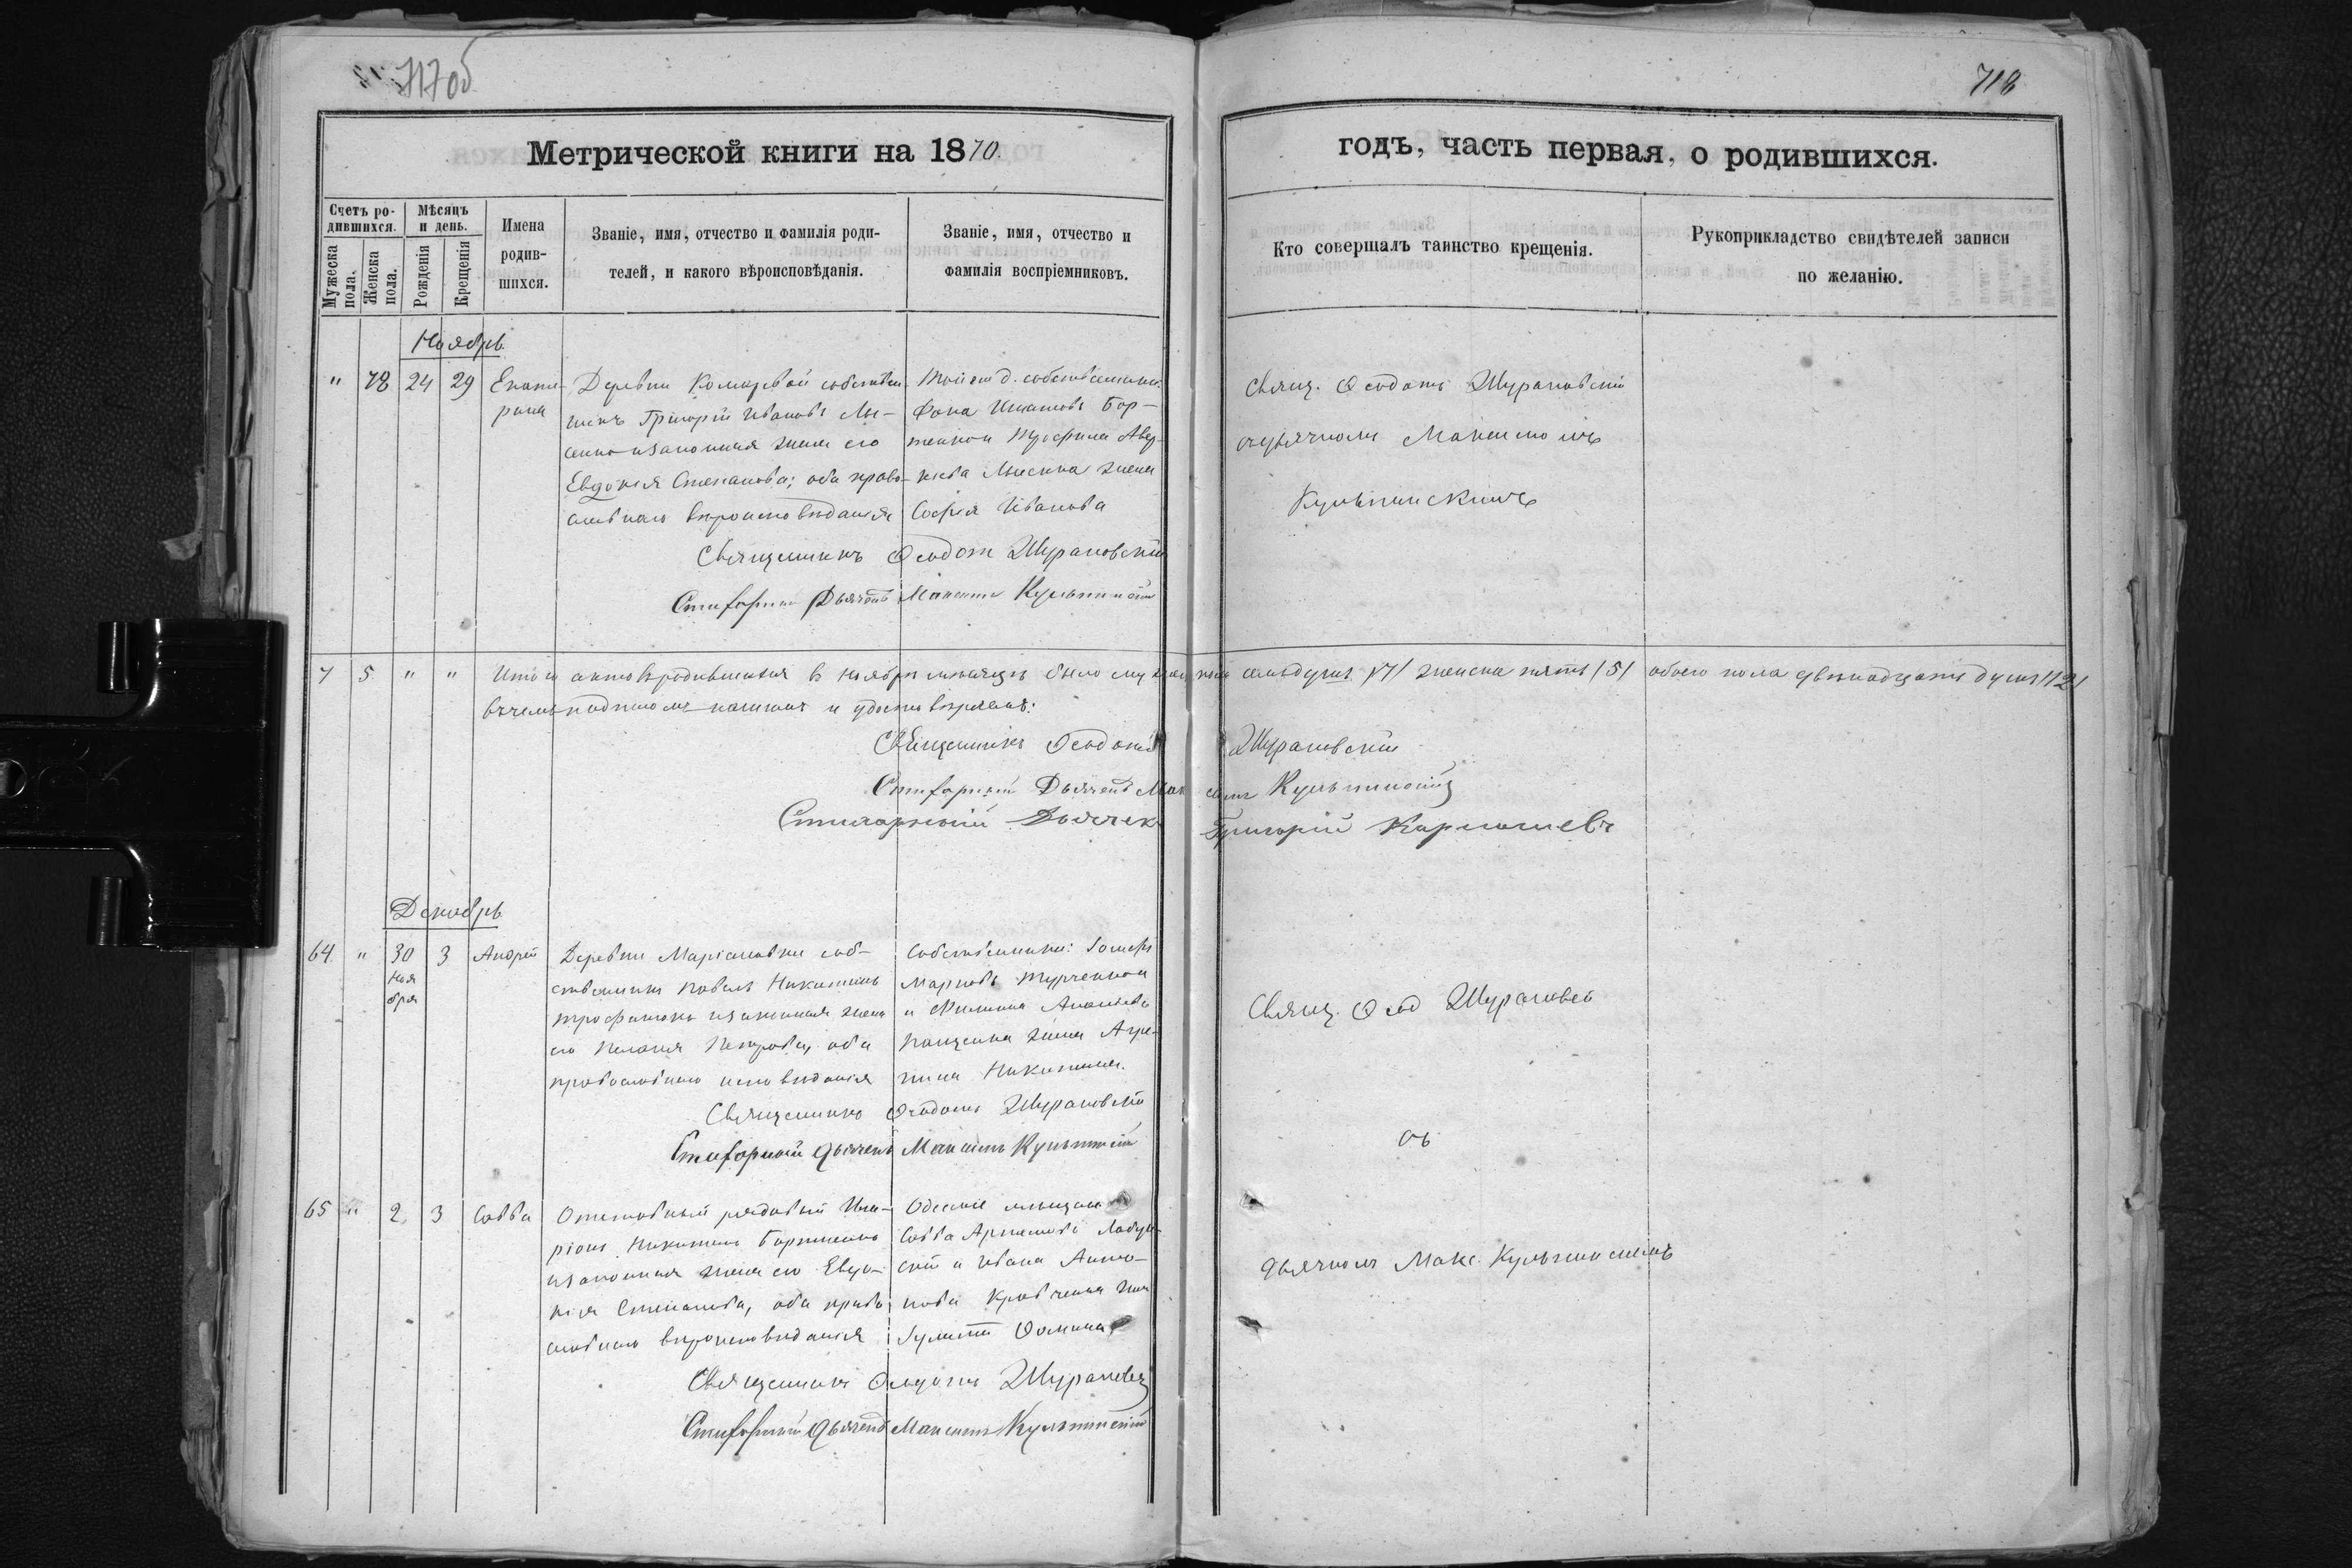 717 об
718
Метрической книги на 1870.
годъ, часть первая, о родившихся.
Счетъ ро-
дившихся.
Мужеска пола.
Женска пола.
Мѣсяцъ
и день.
Рожденія
Крещенія
Имена
родив-
шихся.
Званіе, имя, отчество и фамилія роди-
телей, и какого вѣроисповѣданія.
Званіе, имя, отчество и
фамилія воспріемниковъ.
Кто совершалъ таинство крещенія.
Рукоприкладство свидѣтелей записи
по желанію.
Ноябрь
" 78 24 29 Екате-
рина
Деревни Комаровой собствен
никъ Григорій Ивановъ Лы-
сенко и законная жена его
Евдокія Степанова; оба право-
славнаго вѣроисповѣданія
Той же д. собственники
Фока Игнатовъ Бор-
тенко и Трофима Авер-
кіева Лысенка жена
Софія Иванова
Свящ. Ѳеодотъ Шурановскій
съ дьячкомъ Максимомъ
Кульчинскимъ
Священникъ Ѳеодотъ Шурановскій
Стихарный Дьячекъ Максимъ Кульчинскій
7 5 " " Итого актовъ родившихся въ ноябрѣ мѣсяцѣ было мужеска пола семь душъ /7/ женска пять /5/ обоего пола двенадцать душъ /12/
въ чемъ подписомъ нашимъ и удостовѣряемъ:
Священникъ Ѳеодотъ Шурановскій
Стихарный Дьячекъ Максимъ Кульчинскій
Стихарный Дьячекъ Григорій
Декабрь
64 " 30 3 Андрей
Ноя
бря
Деревни Маріановки соб-
ственникъ Павелъ Никитинъ
Трофимовъ и законная жена
его Пелагія Петрова, оба
православнаго исповѣданія
Собственники: Іосифъ
Марковъ Турченко
и Филиппа Ананьева
Пащенка жена Агре-
пина Никитина.
Свящ. Ѳеод Шурановскій
Священникъ Ѳеодотъ Шурановскій
Стихарный дьячекъ Максимъ Кульчинскій
съ
65 " 2 3 Савва
Отставный рядовый Ила-
ріонъ Никитинъ
и законная жена его Евдо-
кія Степанова, оба право
славнаго вѣроисповѣданія
Одескіе мѣщане
Савва Артемовъ
и Ивана Анто-
нова Кравченка жена
Іулитта Ѳомина
дьячкомъ Макс. Кульчинскимъ
Священникъ Ѳеодотъ Шурановскій
Стихарный дьячекъ Максимъ Кульчинскій